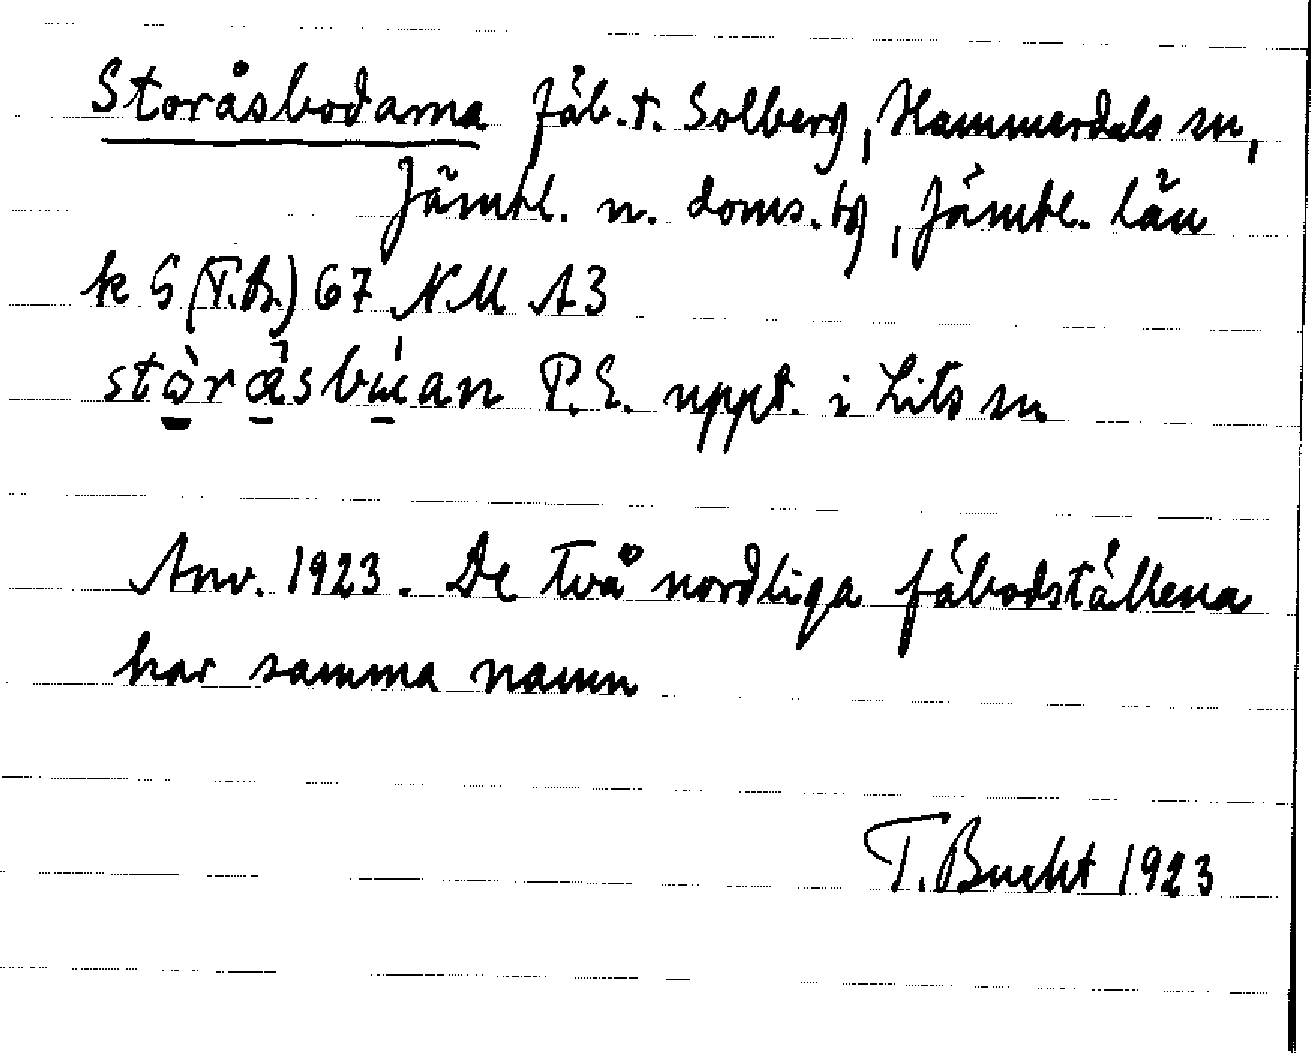 Storåsbodarna fäb. t. Solberg, Hammerdals sn,
Jämtl. n. doms. tg, Jämtl. län
k S (T.B.) 67 NM A3
stὼrāsbúan P.E. uppt. i Lits sn
Anv. 1923. De två nordliga fäbodställena
har samma namn
T. Bucht 1923